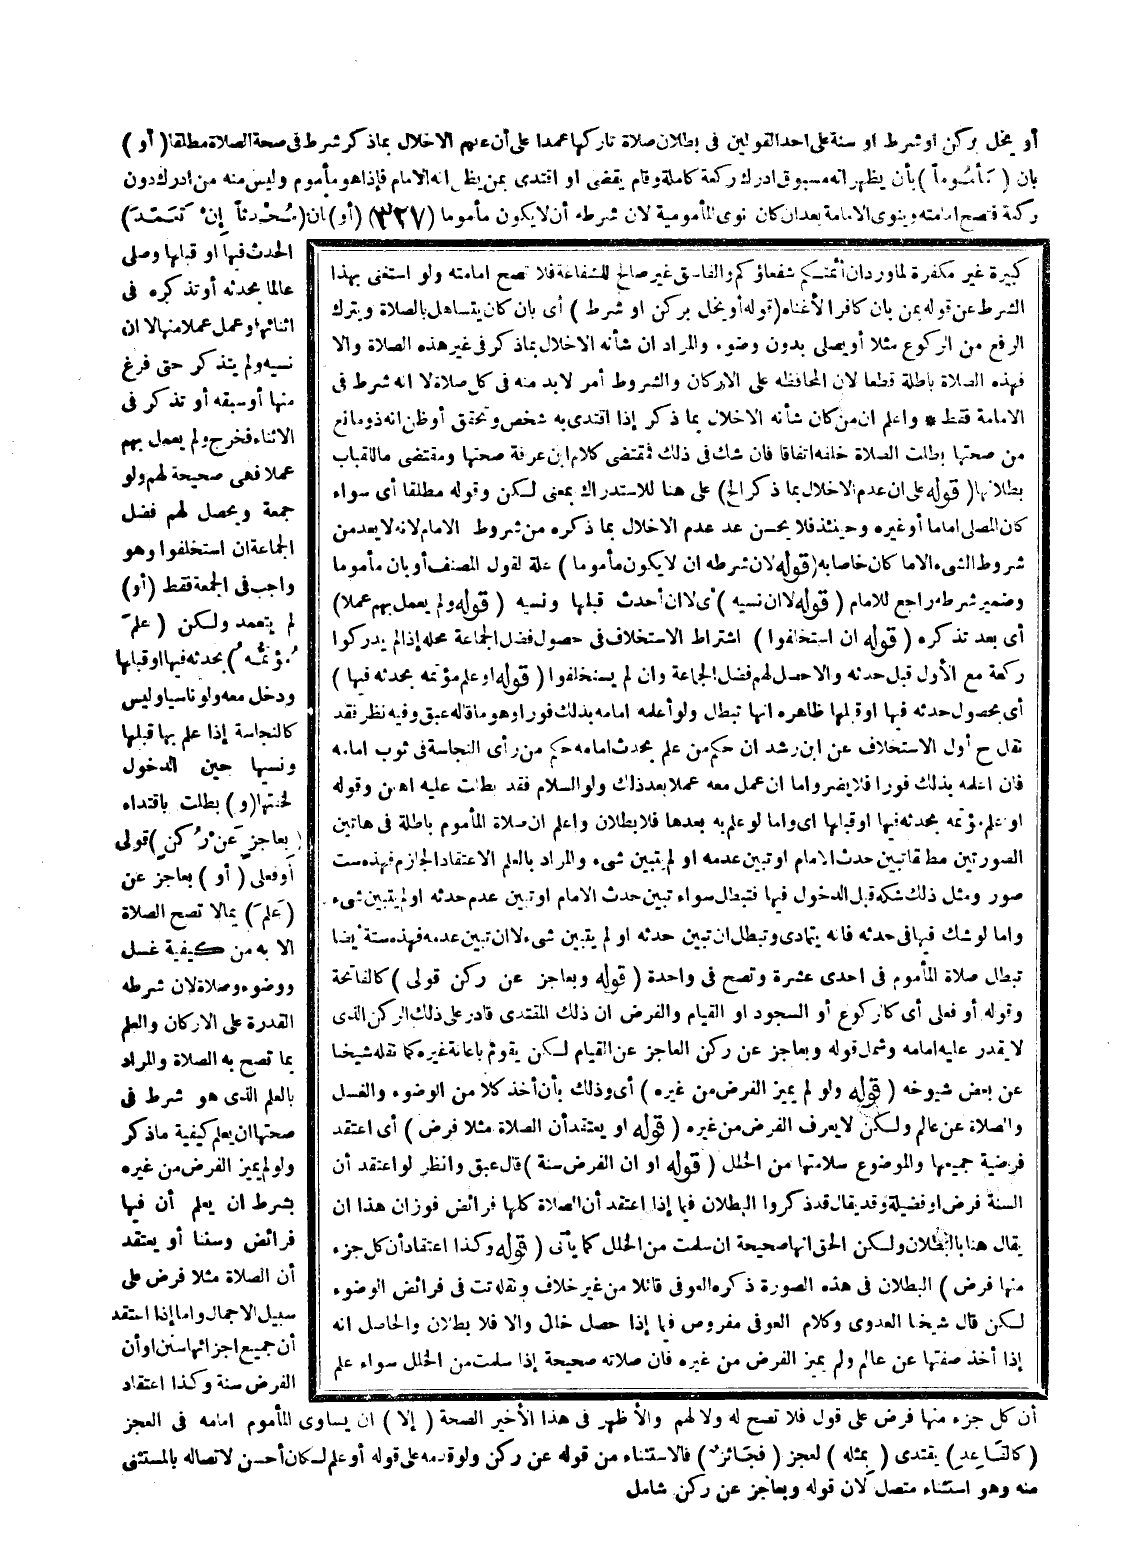 أو يخل بركن او شرط او سنة على احد القولين فى بطلان صلاة تاركها عمدا على أن عدم الاخلال بما ذكر شرط فى صحة الصلاة مطلقا (أو)
بان (مَأْمُوماً) بأن يظهر انه مسبوق ادرك ركعة كاملة وقام يقضى او اقتدى بمن يظن انه الامام فإذا هو مأموم وليس منه من ادرك دون
ركعة فتصح امامته وينوى الامامة بعد ان كان نوى المأمومية لان شرطه أن لا يكون مأموما (٣٢٧) (أو) بان (مُحْدثاً إنْ تَعَمَّدَ)
الحدث فيها او قبلها وصلى
عالما بحدثه أو تذكره فى
اثنائها وعمل عملا منها لا ان
نسيه ولم يتذكر حتى فرغ
منها أو سبقه أو تذكر فى
الاثناء فخرج ولم يعمل بهم
عملا فهى صحيحة لهم ولو
جمعة ويحصل لهم فضل
الجماعة ان استخلفوا وهو
واجب فى الجمعة فقط (أو)
لم يتعمد ولكن (علمَ
مُؤتمُّه) بحدثه فيها او قبلها
ودخل معه ولو ناسيا وليس
كالنجاسة إذا علم بها قبلها
ونسيها حين الدخول
لخفتها (و) بطلت باقتداء
(بعاجزٍ عَنْ رُكن) قولى
أو فعلى (أو) بعاجز عن
(علم) بما لا تصح الصلاة
الا به من كيفية غسل
ووضوء وصلاة لان شرطه
القدرة على الاركان والعلم
بما تصح به الصلاة والمراد
بالعلم الذى هو شرط فى
صحتها ان يعلم كيفية ما ذكر
ولو لم يميز الفرض من غيره
بشرط ان يعلم أن فيها
فرائض وسننا أو يعتقد
أن الصلاة مثلا فرض على
سبيل الاجمال واما إذا اعتقد
أن جميع اجزائها سنن او أن
الفرض سنة وكذا اعتقاد
أن كل جزء منها فرض على قول فلا تصح له ولا لهم والأظهر فى هذا الأخير الصحة (إلا) ان يساوى المأموم امامه فى العجز
(كالقَاعِدِ) يقتدى (بمثله) لعجز (فجَائزٌ) فالاستثناء من قوله عن ركن ولو قدمه على قوله أو علم لكان أحسن لاتصاله بالمستثنى
منه وهو استثناء متصل لان قوله وبعاجز عن ركن شامل
كبيرة غير مكفرة لما ورد ان أئمتكم شفعاؤكم والفاسق غير صالح للشفاعة فلا تصح امامته ولو استغنى بهذا
الشرط عن قوله بمن بان كافرا لأغناه (قوله أو يخل بركن او شرط) أى بان كان يتساهل بالصلاة ويترك
الرفع من الركوع مثلا أو يصلى بدون وضوء والمراد ان شأنه الاخلال بما ذكر فى غير هذه الصلاة والا
فهذه الصلاة باطلة قطعا لان المحافظه على الاركان والشروط أمر لابد منه فى كل صلاة لا انه شرط فى
الامامة فقط * واعلم ان من كان شأنه الاخلال بما ذكر إذا اقتدى به شخص وتحقق أو ظن انه ذو مانع
من صحتها بطلت الصلاة خلفه اتفاقا فان شك فى ذلك فمقتضى كلام ابن عرفة صحتها ومقتضى ما للقباب
بطلانها (قوله على ان عدم الاخلال بما ذكر الخ) على هنا للاستدراك بمعنى لكن وقوله مطلقا أى سواء
كان المصلى اماما أو غيره وحينئذ فلا يحسن عد عدم الاخلال بما ذكره من شروط الامام لانه لا يعد من
شروط الشىء الا ما كان خاصا به (قوله لان شرطه ان لا يكون مأموما) علة لقول المصنف أو بان مأموما
وضمير شرطه راجع للامام (قوله لا ان نسيه) أى لا ان أحدث قبلها ونسيه (قوله ولم يعمل بهم عملا)
أى بعد تذكره (قوله ان استخلفوا) اشتراط الاستخلاف فى حصول فضل الجماعة محله إذا لم يدركوا
ركعة مع الأول قبل حدثه والا حصل لهم فضل الجماعة وان لم يستخلفوا (قوله او علم مؤتمه بحدثه فيها)
أى بحصول حدثه فيها او قبلها ظاهره انها تبطل ولو أعلمه امامه بذلك فورا وهو ما قاله عبق وفيه نظر فقد
نقل ح أول الاستخلاف عن ابن رشد ان حكم من علم بحدث امامه حكم من رأى النجاسة فى ثوب امامه
فان اعلمه بذلك فورا فلا يضر واما ان عمل معه عملا بعد ذلك ولو السلام فقد بطلت عليه اه بن وقوله
او علم مؤتمه بحدثه فيها او قبلها اى واما لو علم به بعدها فلا بطلان واعلم ان صلاة المأموم باطلة فى هاتين
الصورتين مطلقا تبين حدث الامام او تبين عدمه او لم يتبين شىء والمراد بالعلم الاعتقاد الجازم فهذه ست
صور ومثل ذلك شكه قبل الدخول فيها فتبطل سواء تبين حدث الامام او تبين عدم حدثه او لم يتبين شىء
واما لو شك فيها فى حدثه فانه يتمادى وتبطل ان تبين حدثه او لم يتبين شىء لا ان تبين عدمه فهذه ستة ايضا
تبطل صلاة المأموم فى احدى عشرة وتصح فى واحدة (قوله وبعاجز عن ركن قولى) كالفاتحة
وقوله أو فعلى أى كالركوع أو السجود او القيام والفرض ان ذلك المقتدى قادر على ذلك الركن الذى
لا يقدر عليه امامه وشمل قوله وبعاجز عن ركن العاجز عن القيام لكن يقوم باعانة غيره كما نقله شيخنا
عن بعض شيوخه (قوله ولو لم يميز الفرض من غيره) أى وذلك بأن أخذ كلا من الوضوء والغسل
والصلاة عن عالم ولكن لا يعرف الفرض من غيره (قوله او يعتقد أن الصلاة مثلا فرض) أى اعتقد
فرضية جميعها والموضوع سلامتها من الخلل (قوله او ان الفرض سنة) قال عبق وانظر لو اعتقد أن
السنة فرض او فضيلة وقد يقال قد ذكروا البطلان فيما إذا اعتقد أن الصلاة كلها فرائض فوزان هذا ان
يقال هنا بالبطلان ولكن الحق انها صحيحة ان سلمت من الخلل كما يأتى (قوله وكذا اعتقاد أن كل جزء
منها فرض) البطلان فى هذه الصورة ذكره العوفى قائلا من غير خلاف ونقله تت فى فرائض الوضوء
لكن قال شيخنا العدوى وكلام العوفى مفروض فيما إذا حصل خلل والا فلا بطلان والحاصل انه
إذا أخذ صفتها عن عالم ولم يميز الفرض من غيره فان صلاته صحيحة إذا سلمت من الخلل سواء علم